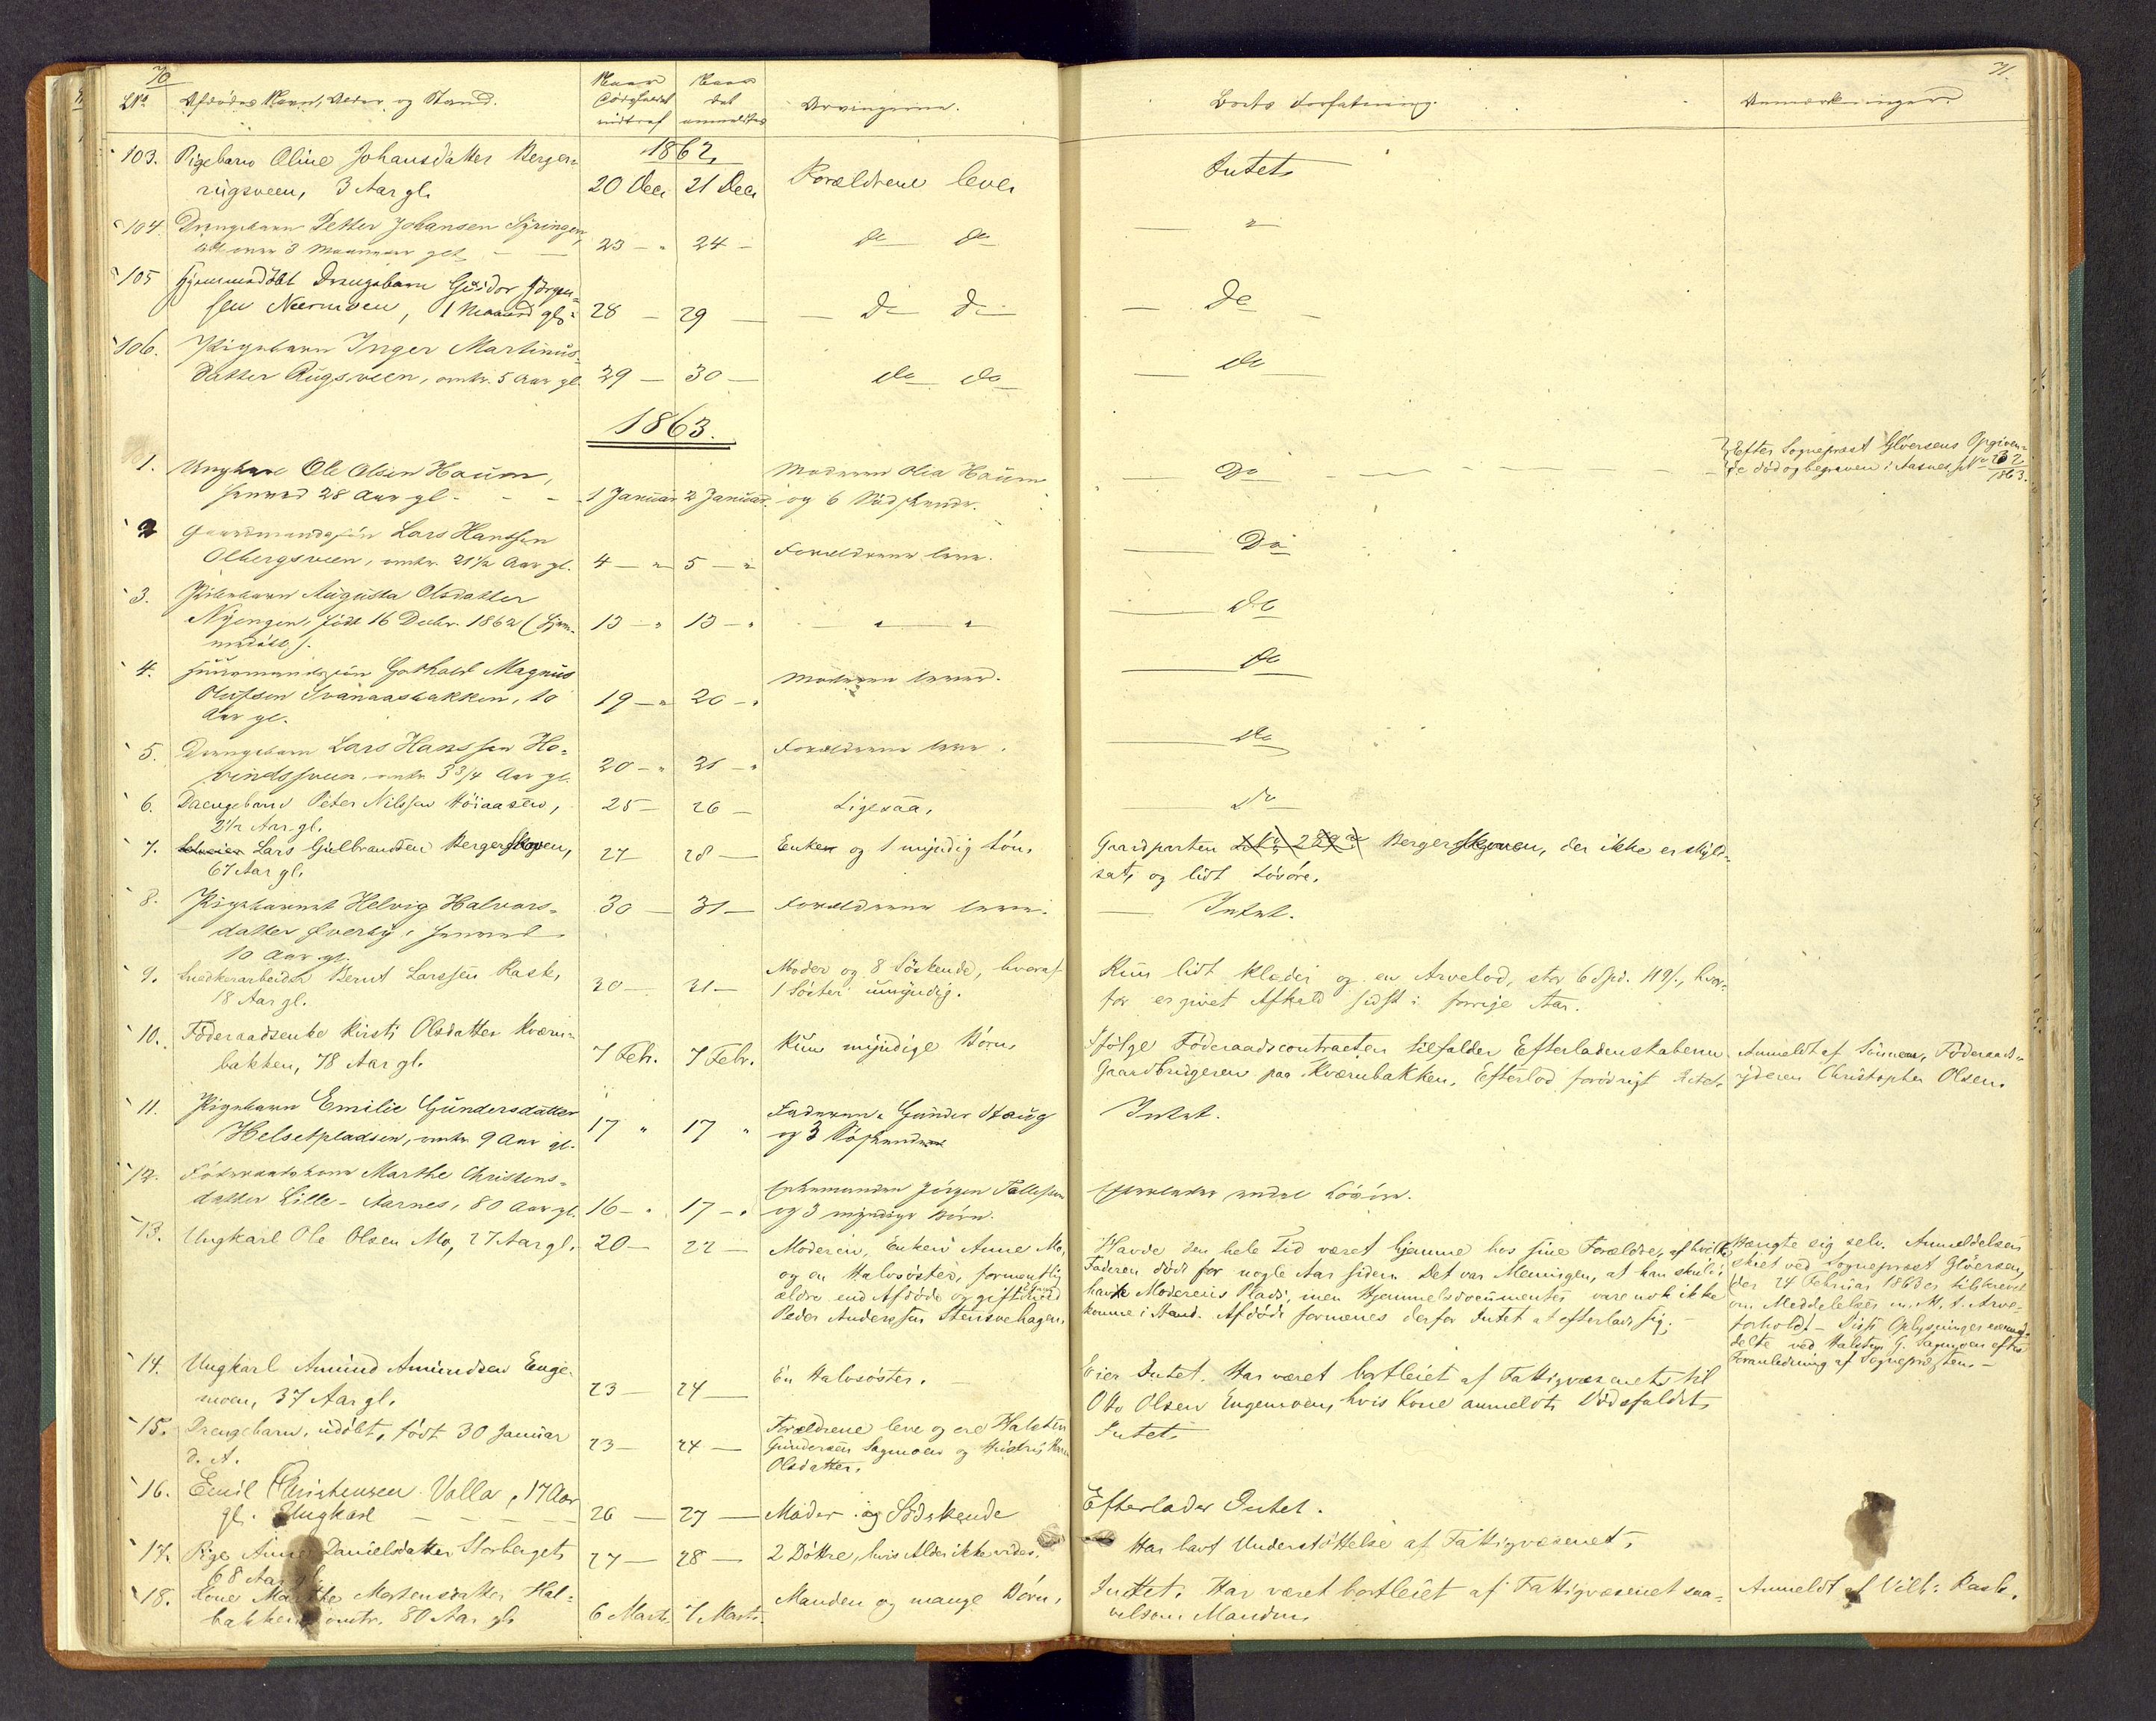 70
L№
Afdødes Navn, Alder og Stand.
Naar Dødsfaldet indtraf
Naar det anmeldtes
Arvingerne.
Boets Forfatning.
Anmærkninger.
71.
1862,
103. Pigebarn Oline Johansdatter Berger=
rugsveen, 3 Aar gl. 20 Dec. 21 Dec. Forældrene leve. Intet.
104. Drengebarn Petter Johansen
3 Maaneder gl. 23 — " 24 — do do — " —
105 Hjemmedøbt Drengebarn Jørgen=
sen 1 Maaned gl. 28 — 29 — do do — do —
106. Pigebarn Inger Martinus=
datter Rugsveen, omtr. 5 Aar gl. 29 — 30 — do do — do —
1863.
1. Ungkarl Ole Olsen Haum,
28 Aar gl. 1 Januar 2 Januar. Moderen Olia Haum
og 6 Sødskende. Do
Efter Sognepræst Gløersens Opgiven=
de død og begraven i Aasnes,
1863.
2 Gaardmandssøn Lars Hanssen
Olbergsveen, omtr. 21½ Aar gl. 4 — " 5 — " Forældrene leve. Do
3. Pigebarn Augusta Olsdatter
Nyengen, født 16 Decbr. 1862 (Hjem=
medøbt). 13 — " 13 — " — " " do
4. Huusmandssøn Gothard Magnus
Olufsen Svanaasbakken, 10
Aar gl. 19 — " 20 — " Moderen lever. do
5. Drengebarn Lars Hanssen Ho=
vindssveen, omtr. 3 3/4 Aar gl. 20 — " 21 — " Forældrene leve. do
6. Drengebarn Peter Nilssen Høiaasen,
2½ Aar gl. 25 — 26 — Ligesaa. do
7. Lars Gulbrandsen Bergerskoven,
67 Aar gl. 27 28 — Enken og 1 myndig Søn. Gaardparten Bergerskoven, der ikke er skyld=
sat, og lidt Løsøre.
8. Pigebarnet Helvig Halvors=
datter Øverby,
10 Aar gl. 30 — 31 — Forældrene leve. Intet.
9. Snedkerarbeider Bernt Larssen Rask,
18 Aar gl. 30 — 31 — Moder og 8 Søskende, hvoraf
1 Søster umyndig. Kun lidt Klæder og en Arvelod, stor 6 Spd. 119 s., hvor=
for er givet Afkald sidst i forrige Aar.
10. Føderaadsenke Kirsti Olsdatter Kværn=
bakken, 78 Aar gl. 7 Febr. 7 Febr. Kun myndige Børn. Ifølge Føderaadscontracten tilfalder Efterladenskaberne
Gaardbrugeren paa Kværnbakken. Efterlod forøvrigt Intet.
Anmeldt af Sønnen, Føderaads=
yderen Christopher Olsen.
11. Pigebarn Emilie Gundersdatter
Helsetpladsen, omtr. 9 Aar gl. 17 " 17 " Faderen Gunder Haug
og 3 Søskende Intet.
12. Føderaadskone Marthe Christens=
datter Lille-Aarnes, 80 Aar gl. 16 — " 17 — " Jørgen Tollefsen
og 3 myndige Børn. Efterlader endel Løsøre.
13. Ungkarl Ole Olsen Mo, 27 Aar gl. 20 — 22 — Moderen, Enken Anne Mo,
og en Halvsøster, formentlig
ældre end Afdøde og gift med
Peder Anderssen Stensvehagen.
Havde den hele Tid været hjemme hos sine Forældre, af hvilke
Faderen døde for nogle Aar siden. Det var Meningen, at han skulde
have Moderens Plads, men Hjemmelsdocumenter vare nok ikke
komne i Stand. Afdøde formenes derfor Intet at efterlade sig.
Hængte sig selv. Anmeldelsen
skeet ved Sognepræst Gløersen,
der 24 Februar 1863 er tilskrevet
om Meddelelse m. H. t. Arve=
forhold. — Disse Oplysninger ere med=
delte ved Halsten G. Sagmoen efter
Foranledning af Sognepræsten. —
14. Ungkarl Amund Amundsen Enge=
moen, 37 Aar gl. 23 — 24 — En Halvsøster. Eier Intet. Har været bortleiet af Fattigvæsenet til
Otto Olsen Engemoen, hvis Kone anmeldte Dødsfaldet.
15. Drengebarn, udøbt, født 30 Januar
d. A. 23 — 24 — Forældrene leve og ere Halsten
Gundersen Sagmoen og Hustru
Olsdatter. Intet.
16. Emil Christensen Valla, 17 Aar
gl. Ungkarl 26 — 27 — Moder og Sødskende Efterlader Intet.
17. Pige Anne Danielsdatter Storberget,
68 Aar gl. 27 — 28 — 2 Døttre, hvis Alder ikke vides. Har havt Understøttelse af Fattigvæsenet.
18. Kone Marthe Mortensdatter Hol=
bakken omtr. 80 Aar gl. 6 Marts 7 Marts. Manden og mange Børn. Intet. Har været bortleiet af Fattigvæsenet saa=
velsom Manden.
Anmeldt af Vilh. Rask.